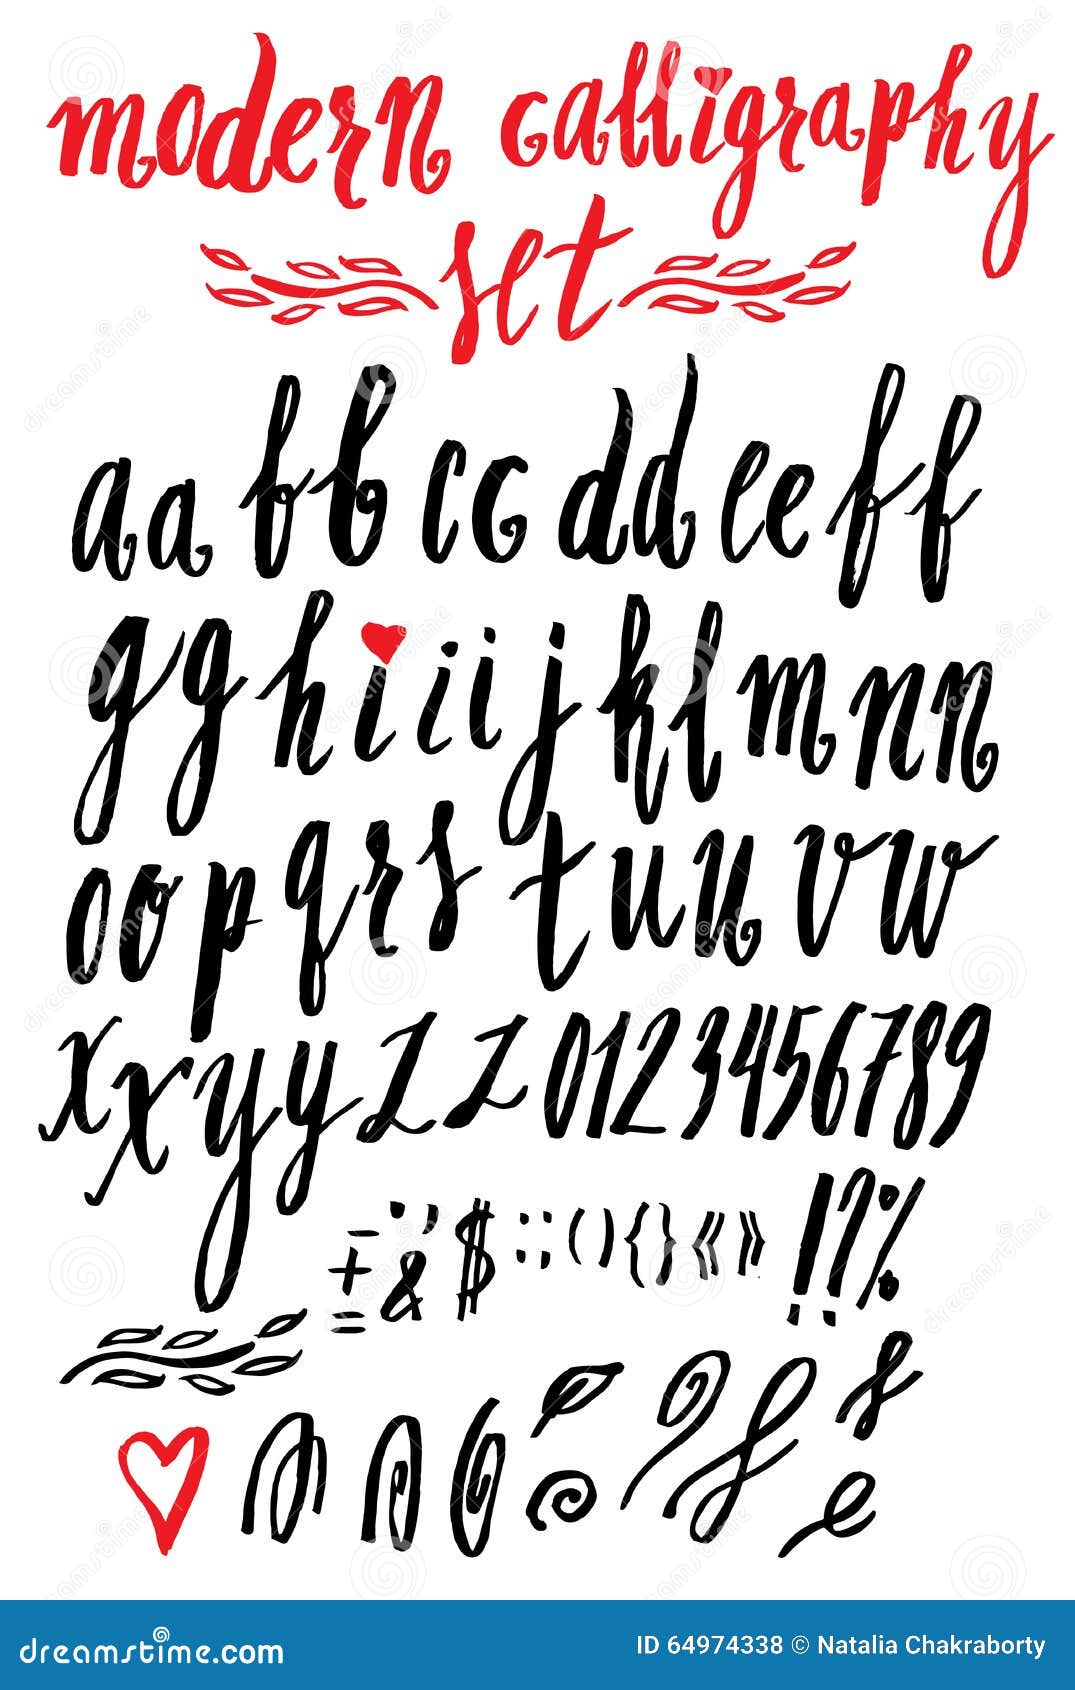 modern calligraphy
set
aa bb cc dd ee ff
gg h iii j k l m nn
oo p q r s t uu v w
xx yy zz 0123456789
- + = . ' & $ : ; ( ) { } « » ! ? %
dreamstime.com
ID 64974338 © Natalia Chakraborty